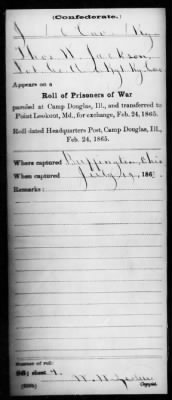 (Confederate.)
J 1 Cav. Ky.
Thos. W. Jackson
Appears on a
Roll of Prisoners of War
paroled at Camp Douglas, Ill., and transferred to
Point Lookout, Md., for exchange, Feb. 24, 1865.
Roll dated Headquarters Post, Camp Douglas, Ill.,
Feb. 24, 1865.
Where captured Buffington, Ohio
When captured July 19, 186
Remarks:
Number of roll:
sheet 4
W. W.
Copyist.